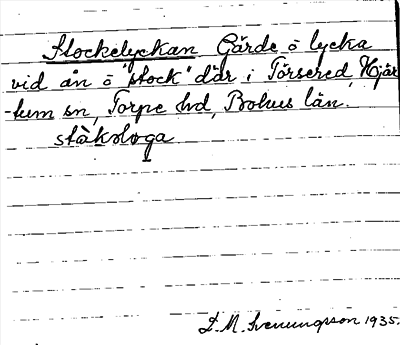 Stockelyckan Gärde o lycka
vid ån o "stock" där i Torsered, Hjär
-tum sn, Torpe hd, Bohus län.
D.M. Svenungsson 1935.